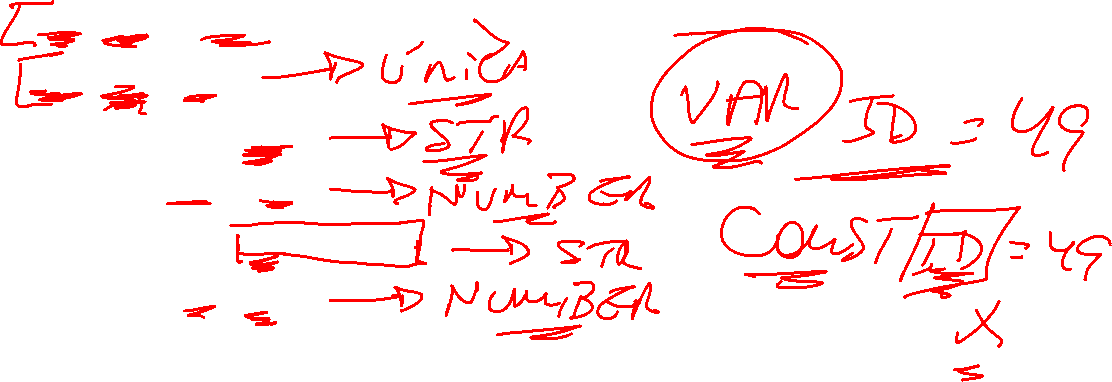 → ÚNICA
→ STR
→ NUMBER
→ STR
→ NUMBER
VAR ID = 49
CONST ID = 49
X